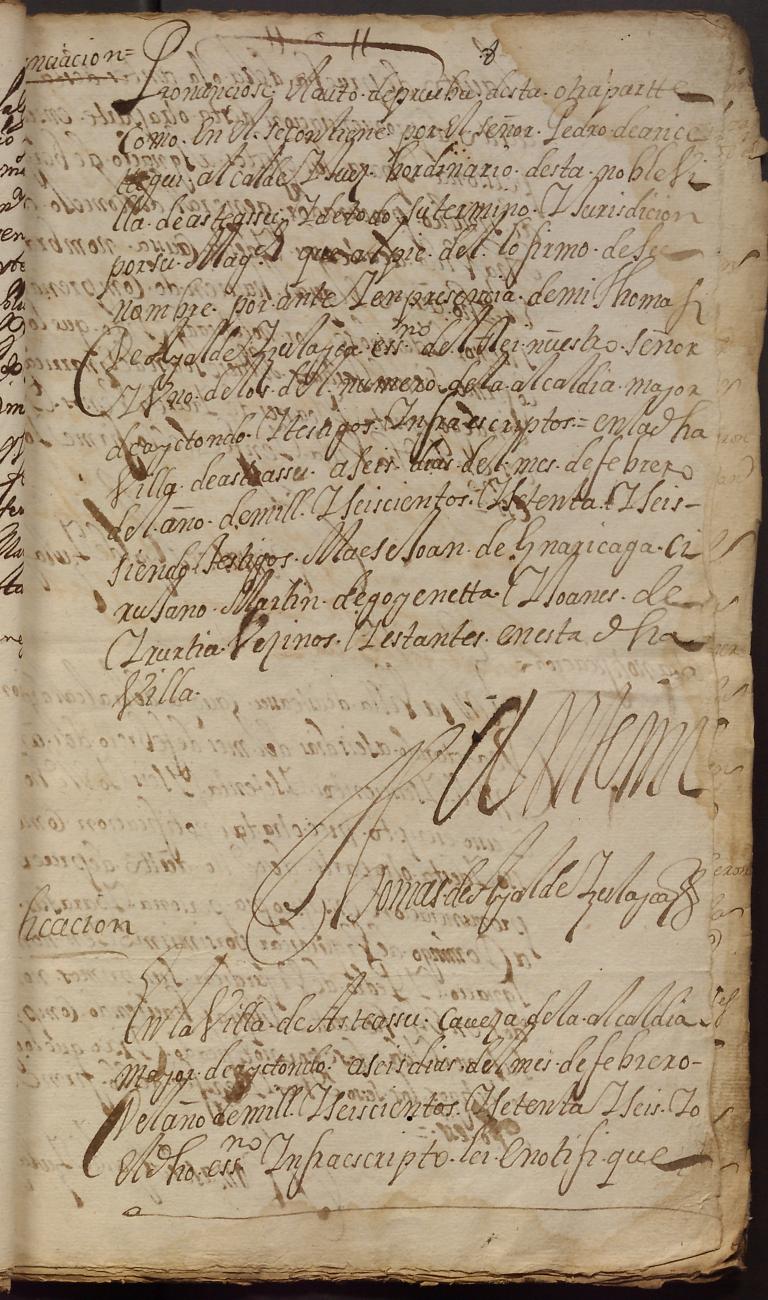 nciacion=
8
Pronunciose el auto de prueba desta otra partte
Como en el se contiene por el señor Pedro de arice
tegui alcalde Y Juez hordinario desta noble Vi
lla de asteassu Y de todo su termino Y Jurisdicion
por su Magd que al pie del lo firmo de su
nombre por ante Y en presencia de mi Thomas
De Ugalde Zulayca essno del Rei nuestro señor
Y Uno de los del numero de la alcaldia major
de ayztondo Y testigos Infraescriptos = en la dha
Villa de asteassu a seis dias del mes de febrero
del año de mill Y seiscientos Y setenta Y seis
siendo testigos Maese Joan de
rujano Martin de goyenetta Y Joanes de
Yrurtia Vezinos Y estantes en esta dha
Villa
Ante mi
Tomas de Ugalde Zulayca
ficacion
En la Villa de Asteassu Caveza de la alcaldia
mayor de ayztondo a seis dias del mes de febrero
del año de mill Y seiscientos Y setenta Y seis Yo
el dho essno Infraescripto lei e notifique